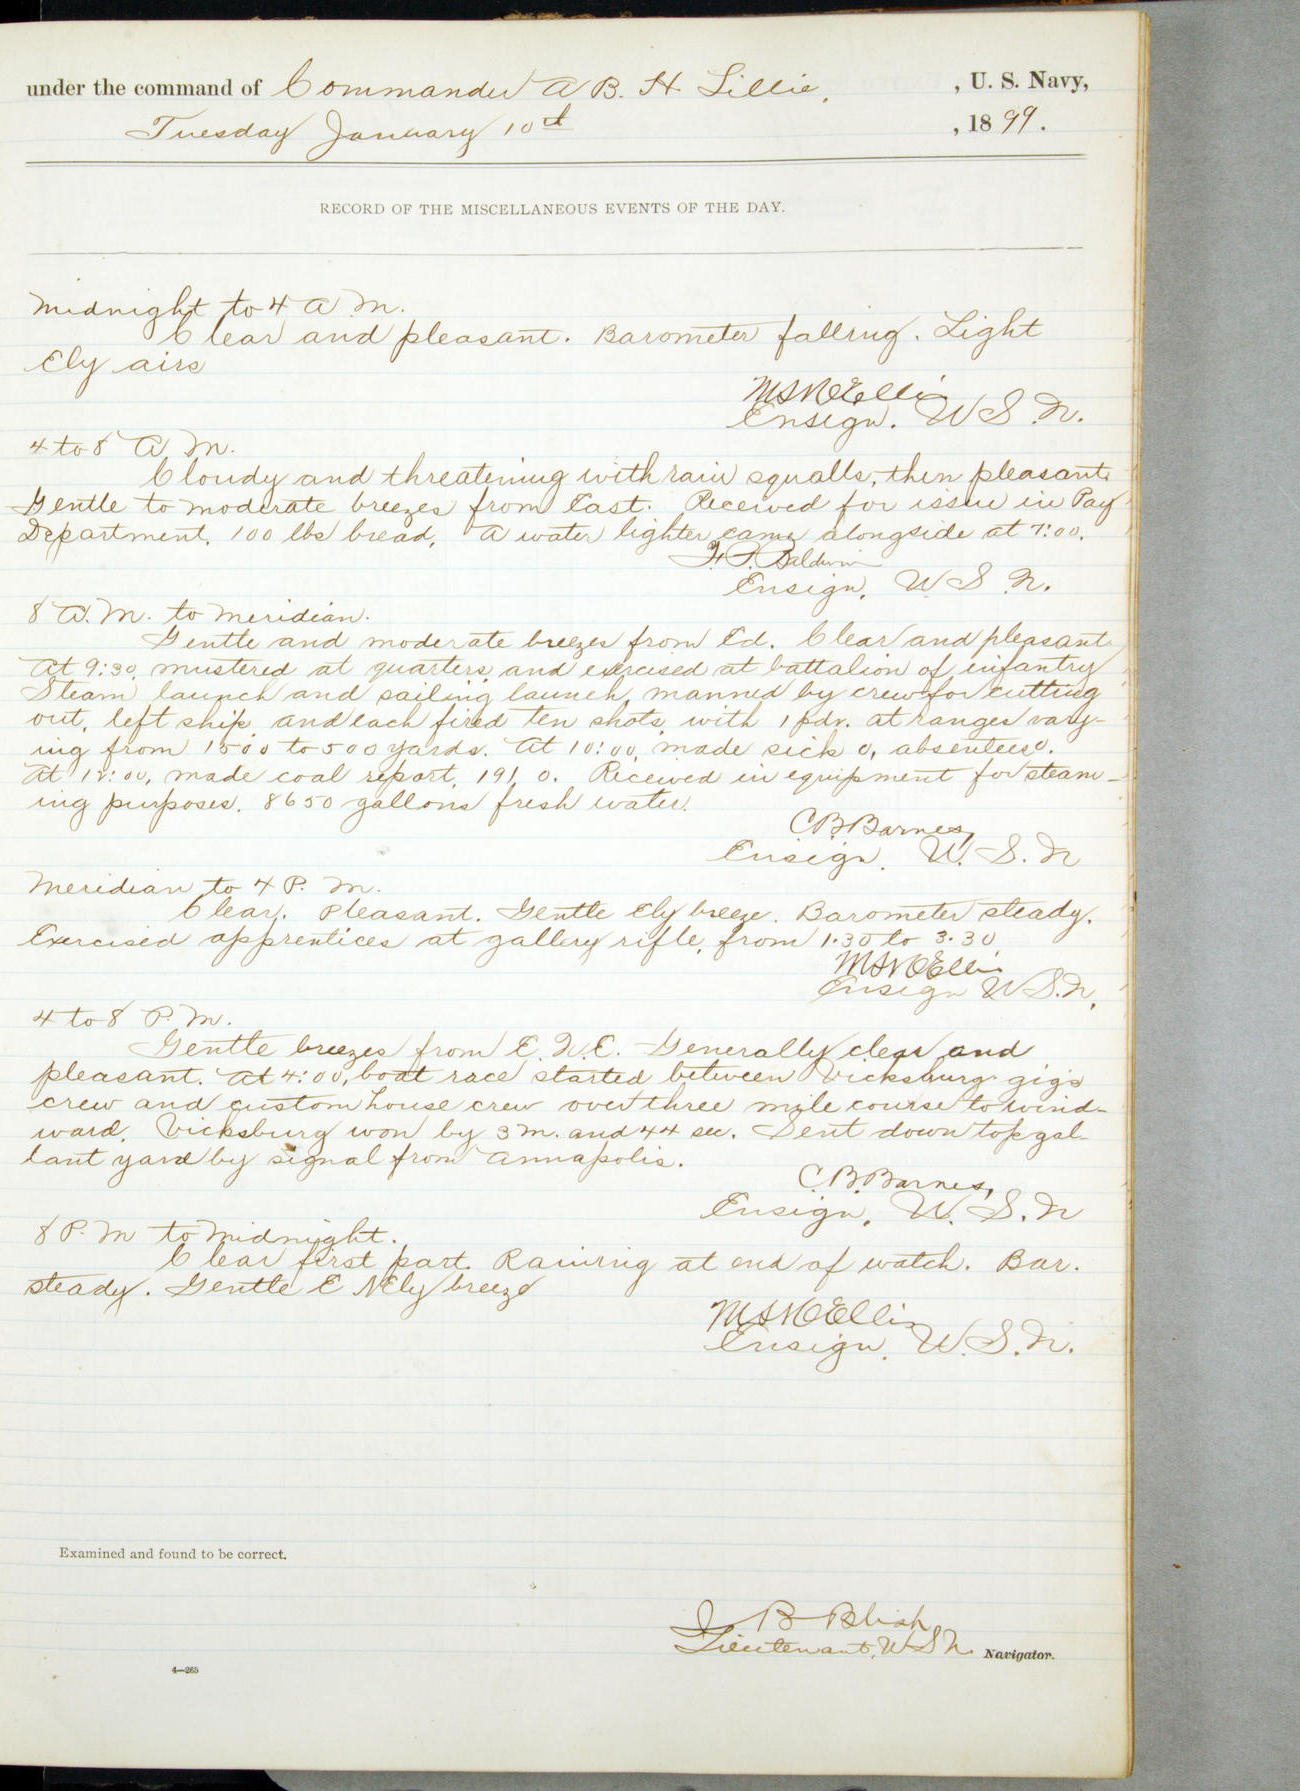 under the command of Commander A B. H. Lillie, , U. S. Navy,
Tuesday January 10th , 1899.
RECORD OF THE MISCELLANEOUS EVENTS OF THE DAY.
Midnight to 4 A. M.
Clear and pleasant. Barometer falling. Light
Ely airs
Ensign. U S. N.
4 to 8 A. M.
Cloudy and threatening with rain squalls, then pleasant.
Gentle to moderate breezes from East. Received for issue in Pay
Department, 100 lbs bread. A water lighter came alongside at 7:00.
Baldwin
Ensign, U S N.
8 A. M. to Meridian.
Gentle and moderate breezes from Ed. Clear and pleasant
At 9:30, mustered at quarters and exercised at battalion of infantry
Steam launch and sailing launch, manned by crew for cutting
out, left ship, and each fired ten shots, with 1 pdr. at ranges vary-
ing from 1500 to 500 yards. At 10:00, made sick 0, absentees 0.
At 12:00, made coal report, 191, 0. Received in equipment for steam-
ing purposes. 8650 gallons fresh water.
C B Barnes,
Ensign, U. S. N
Meridian to 4 P. M.
Clear. Pleasant. Gentle Ely breeze. Barometer steady.
Exercised apprentices at gallery rifle, from 1.30 to 3.30
Ensign U S. N.
4 to 8 P. M.
Gentle breezes from E. N. E. Generally clear and
pleasant. At 4:00, boat race started between Vicksburg gig's
crew and custom house crew over three mile course to wind-
ward. Vicksburg won by 3 m. and 44 sec. Sent down top gal-
lant yard by signal from Annapolis.
C. B. Barnes,
Ensign, U. S. N
8 P. M to Midnight.
Clear first part. Raining at end of watch. Bar.
steady. Gentle E NEly breeze
Ensign, U. S. N.
Examined and found to be correct.
J B Blish
Lieutenant, U S N. Navigator.
4—265